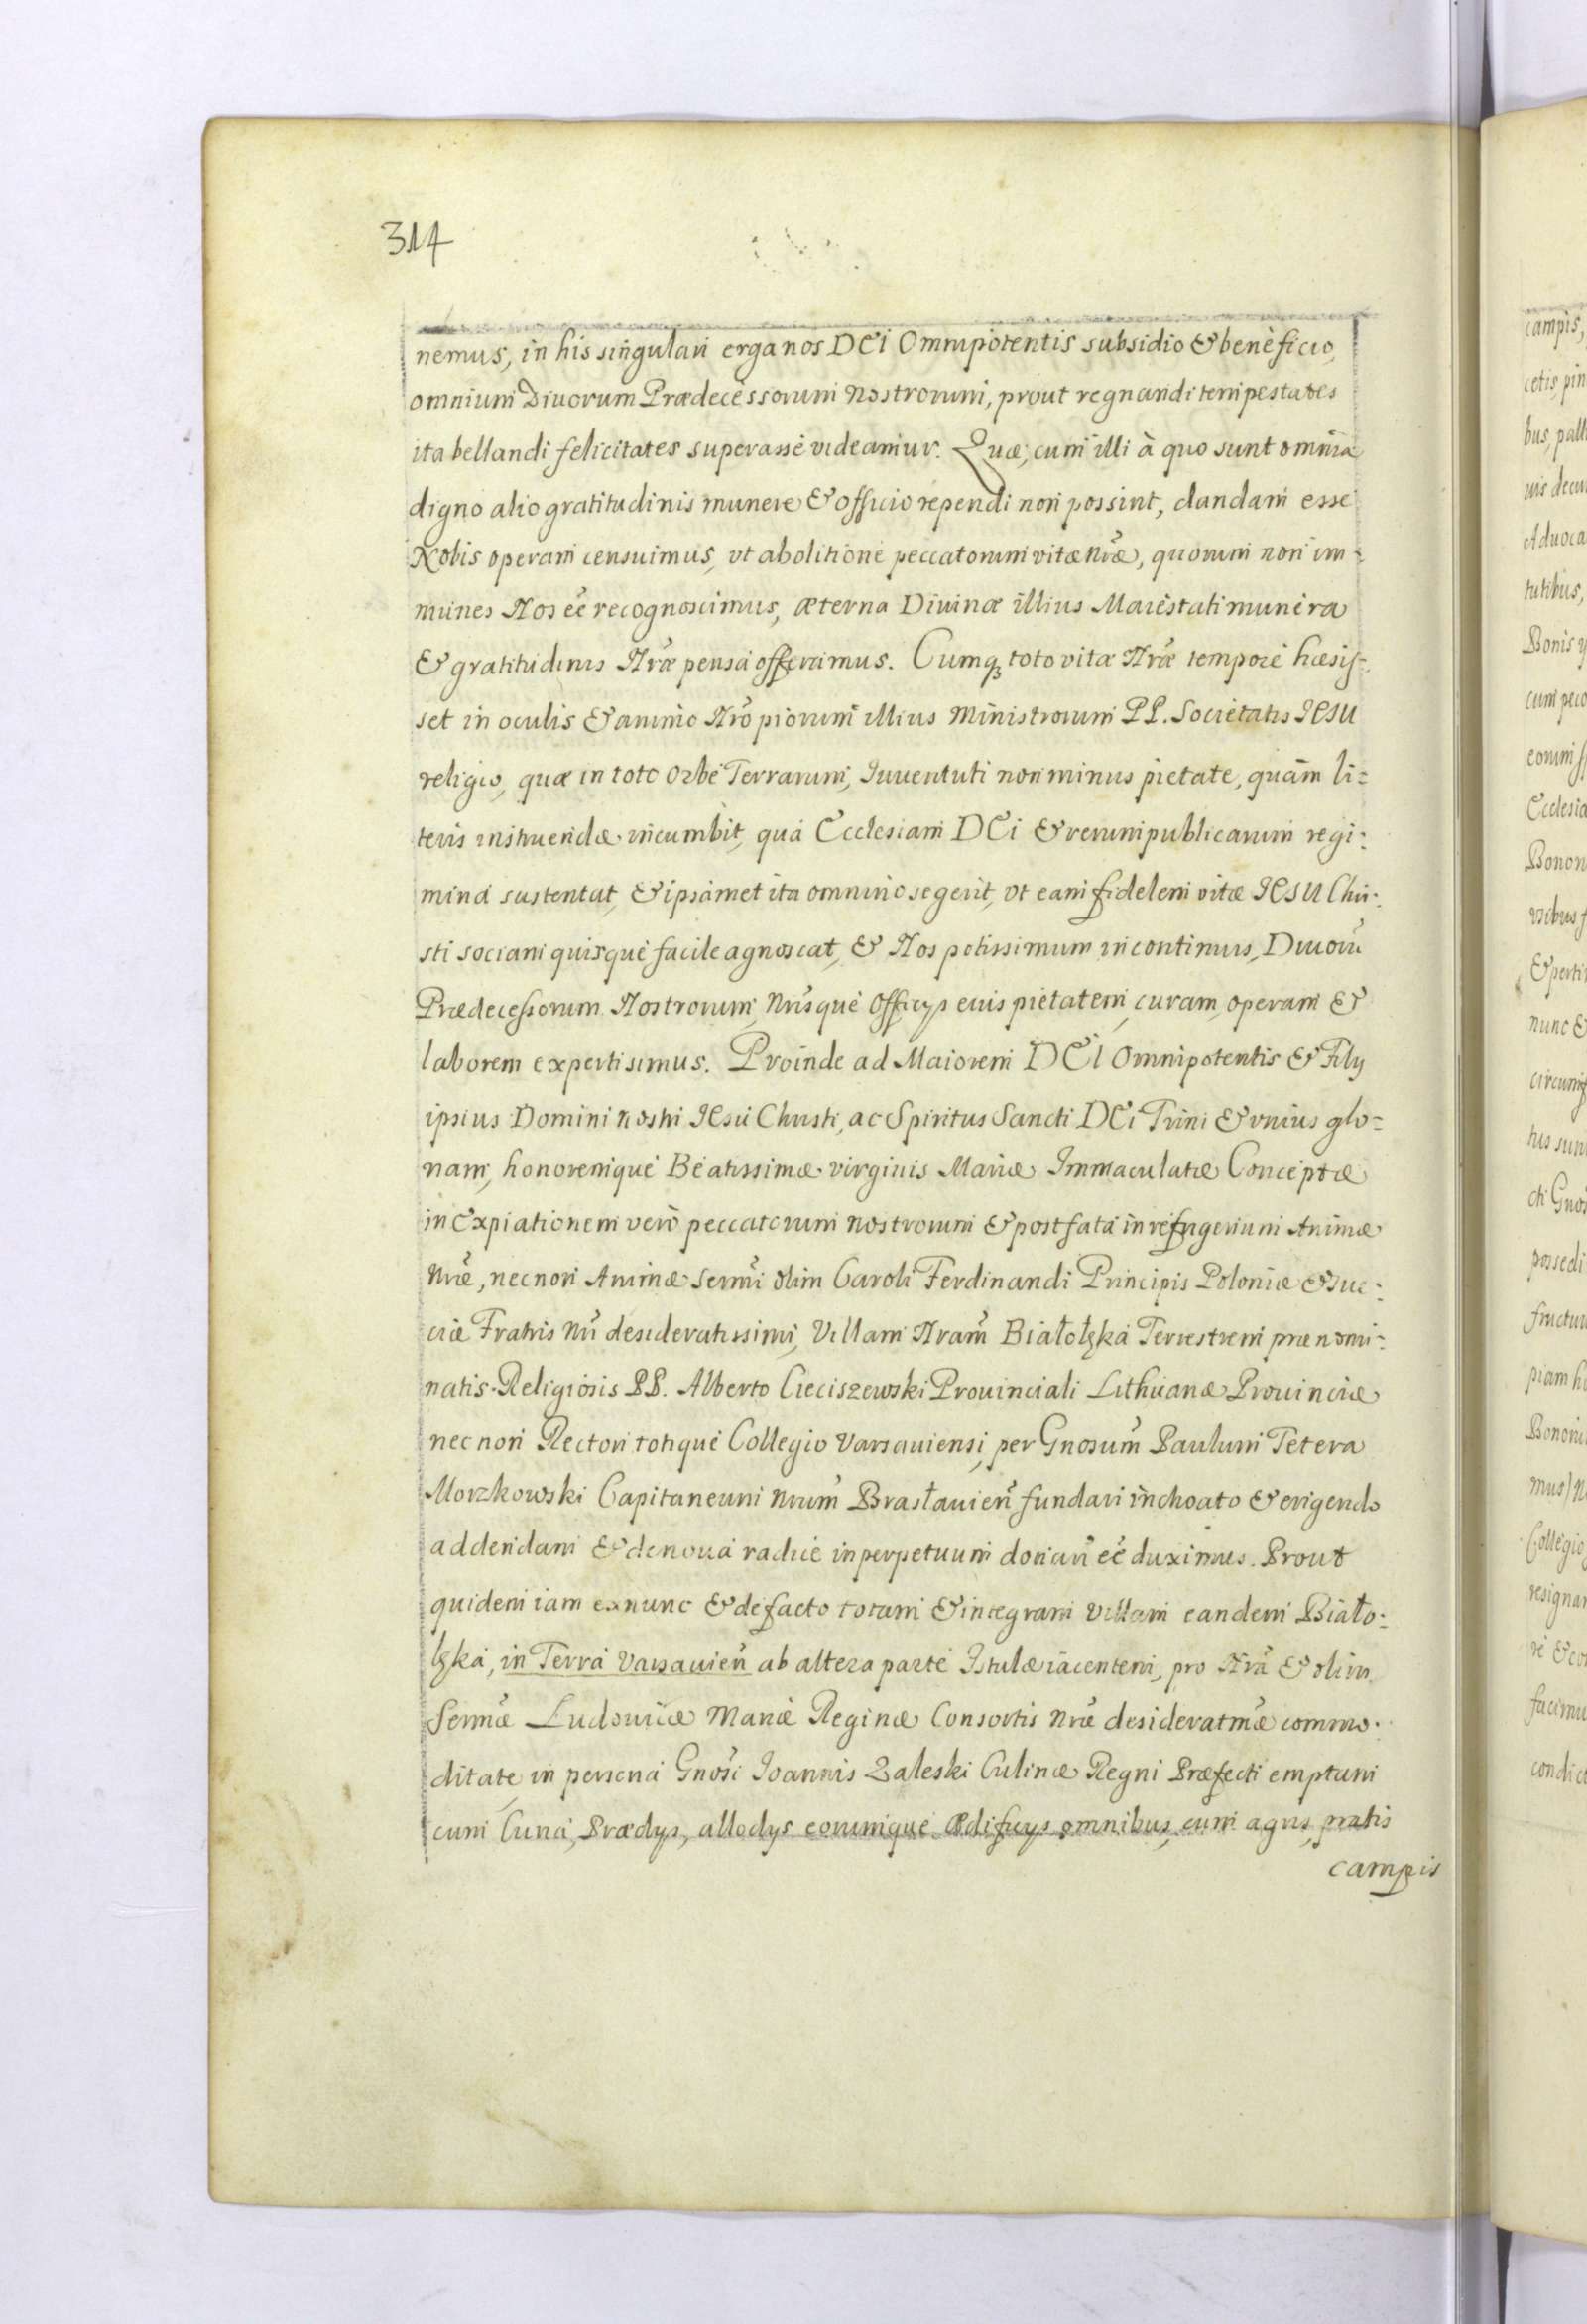 314
nemus, in his singulari erga nos DEI Omnipotentis subsidio & beneficio,
omnium Divorum Prædecessorum Nostrorum, prout regnandi tempestates
ita bellandi felicitates superasse videamur. Quæ, cum illi à quo sunt omnia
digno alio gratitudinis munere & officio rependi non possint, dandam esse
Nobis operam censuimus, vt abolitione peccatorum vitæ nr̃æ, quorum non im-
munes Nos eẽ recognoscimus, æterna Divinæ illius Maiestati munera
& gratitudinis Nr̃æ pensa offeramus. Cumq3 toto vitæ Nr̃æ tempore hæsis-
set in oculis & animo Nr̃o piorum illius Ministrorum PP. Societatis IESU
religio, quæ in toto Orbe Terrarum, Iuventuti non minus pietate, quàm li-
teris instruendæ incumbit, quâ Ecclesiam DEi & rerumpublicarum regi-
mina sustentat, & ipsamet ita omnino se gerit, vt eam fidelem vitæ IESU Chri-
sti sociam quisque facile agnoscat, & Nos potissimum in continuis, Divorũ
Prædecessorum Nostrorum, Nr̃isque Officys eius pietatem, curam, operam &
laborem expertisimus. Proinde ad Maiorem DEI Omnipotentis & Fily
ipsius Domini nostri IEsu Christi, ac Spiritus Sancti DEi Trini & vnius glo-
riam, honoremque Beatissimæ virginis Mariæ Immaculatæ Conceptæ
in Expiationem verò peccatorum nostrorum & post fata in refrigerium Animæ
Nr̃æ, necnon Animæ Serm̃i olim Caroli Ferdinandi Principis Poloniæ & Sue-
ciæ Fratris Nr̃i desideratissimi, Villam Nram̃ Białołęka Terrestrem prænomi-
natis Religiosis PP. Alberto Cieciszewski Provinciali Lithuanæ Provinciæ
necnon Rectori totique Collegio Varsaviensi, per Gnosum̃ Paulum Tetera
Morzkowski Capitaneum Nrum̃ Brasłavień fundari inchoato & erigendo
addendam & de nova radice in perpetuum donarĩ eẽ duximus. Prout
quidem iam exnunc & de facto totam & integram Villam eandem Biało-
łęka, in Terra Varsavień ab altera parte Istulæ iacentem, pro Nr̃a & olim
Serm̃æ Ludovicæ Mariæ Reginæ Consortis Nr̃æ desideratm̃æ commo-
ditate, in persona Gnosĩ Ioannis Zaleski Culinæ Regni Præfecti emptum
cum Curia, Prædys, allodys eorumque Ædificys omnibus, cum agris, pratis
campis